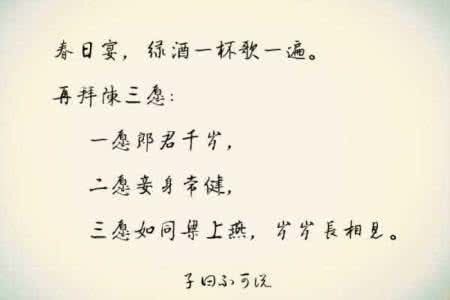 春日宴，绿酒一杯歌一遍。
再拜陳三愿：
一愿郎君千岁，
二愿妾身常健，
三愿如同梁上燕，岁岁長相见。
子曰不可说